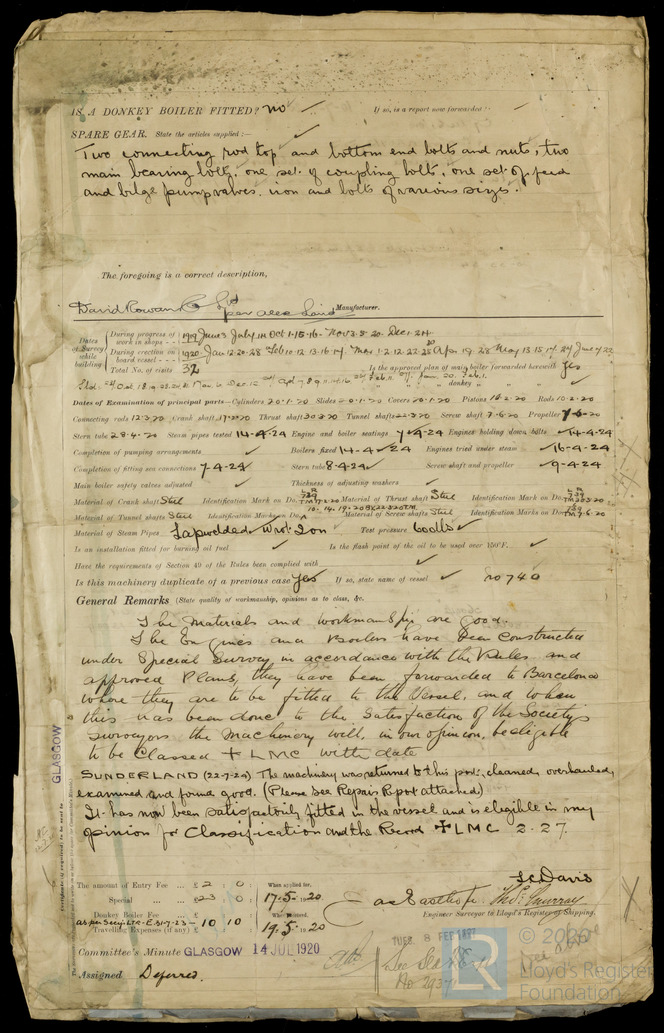 IS A DONKEY BOILER FITTED? no If so, is a report now forwarded?
SPARE GEAR. State the articles supplied:—
Two connecting rod top and bottom end bolts and nuts, two
main bearing bolts, one set of coupling bolts, one set of feed
and bilge pump valves, iron and bolts of various sizes.
The foregoing is a correct description,
David Rowan & Co Ltd per Alex Laird Manufacturer.
Dates of Survey while building
During progress of work in shops - - 1919 June 3 July 14 Oct 1-15-16- Nov 3-5-20 Dec 1-24
During erection on board vessel - - - 1920 Jan 12-20-28 Feb 10-12-13-16-17
Total No. of visits 32 Is the approved plan of main boiler forwarded herewith Yes
" " " donkey " " "
Dates of Examination of principal parts—Cylinders 20-1-20 Slides 20-1-20 Covers 20-1-20 Pistons 16-2-20 Rods 10-2-20
Connecting rods 12-3-20 Crank shaft 17-2-20 Thrust shaft 30-3-20 Tunnel shafts 22-3-20 Screw shaft 7-6-20 Propeller 7-6-20
Stern tube 28-4-20 Steam pipes tested 14-4-24 Engine and boiler seatings 7-4-24 Engines holding down bolts 14-4-24
Completion of pumping arrangements Boilers fixed 14-4-24 Engines tried under steam 16-4-24
Completion of fitting sea connections 7-4-24 Stern tube 8-4-24 Screw shaft and propeller 9-4-24
Main boiler safety valves adjusted Thickness of adjusting washers
Material of Crank shaft Steel Identification Mark on Do. Material of Thrust shaft Steel Identification Mark on Do.
Material of Tunnel shafts Steel Identification Marks on Do. Material of Screw shafts Steel Identification Marks on Do.
Material of Steam Pipes Lapwelded Wrot Iron Test pressure 600 lbs
Is an installation fitted for burning oil fuel Is the flash point of the oil to be used over 150°F.
Have the requirements of Section 49 of the Rules been complied with
Is this machinery duplicate of a previous case Yes If so, state name of vessel No 740
General Remarks (State quality of workmanship, opinions as to class, &c.
The Materials and workmanship are good.
The Engines and Boilers have been constructed
under Special Survey in accordance with the Rules and
approved Plans, they have been forwarded to Barcelona
where they are to be fitted to the vessel, and when
this has been done to the satisfaction of the Society's
surveyors the machinery will, in our opinion, be eligible
to be Classed + LMC with date
SUNDERLAND (22-7-24) The machinery was returned to this port, cleaned, overhauled,
examined and found good. (Please see Repair Report attached)
It has now been satisfactorily fitted in the vessel and is eligible in my
opinion for Classification and the Record + LMC 2-27.
GLASGOW
The amount of Entry Fee ... £ 2 : 0 When applied for,
Special ... £ 23 : 0 17-5-1920
Donkey Boiler Fee When received,
Travelling Expenses (if any) £ 10 10 19.5.1920
J C Davis
Engineer Surveyor to Lloyd's Register of Shipping.
Committee's Minute GLASGOW 14 JUL 1920
TUES. 8 FEB 1927
Assigned Deferred.
LR
© 2020
Lloyd's Register
Foundation